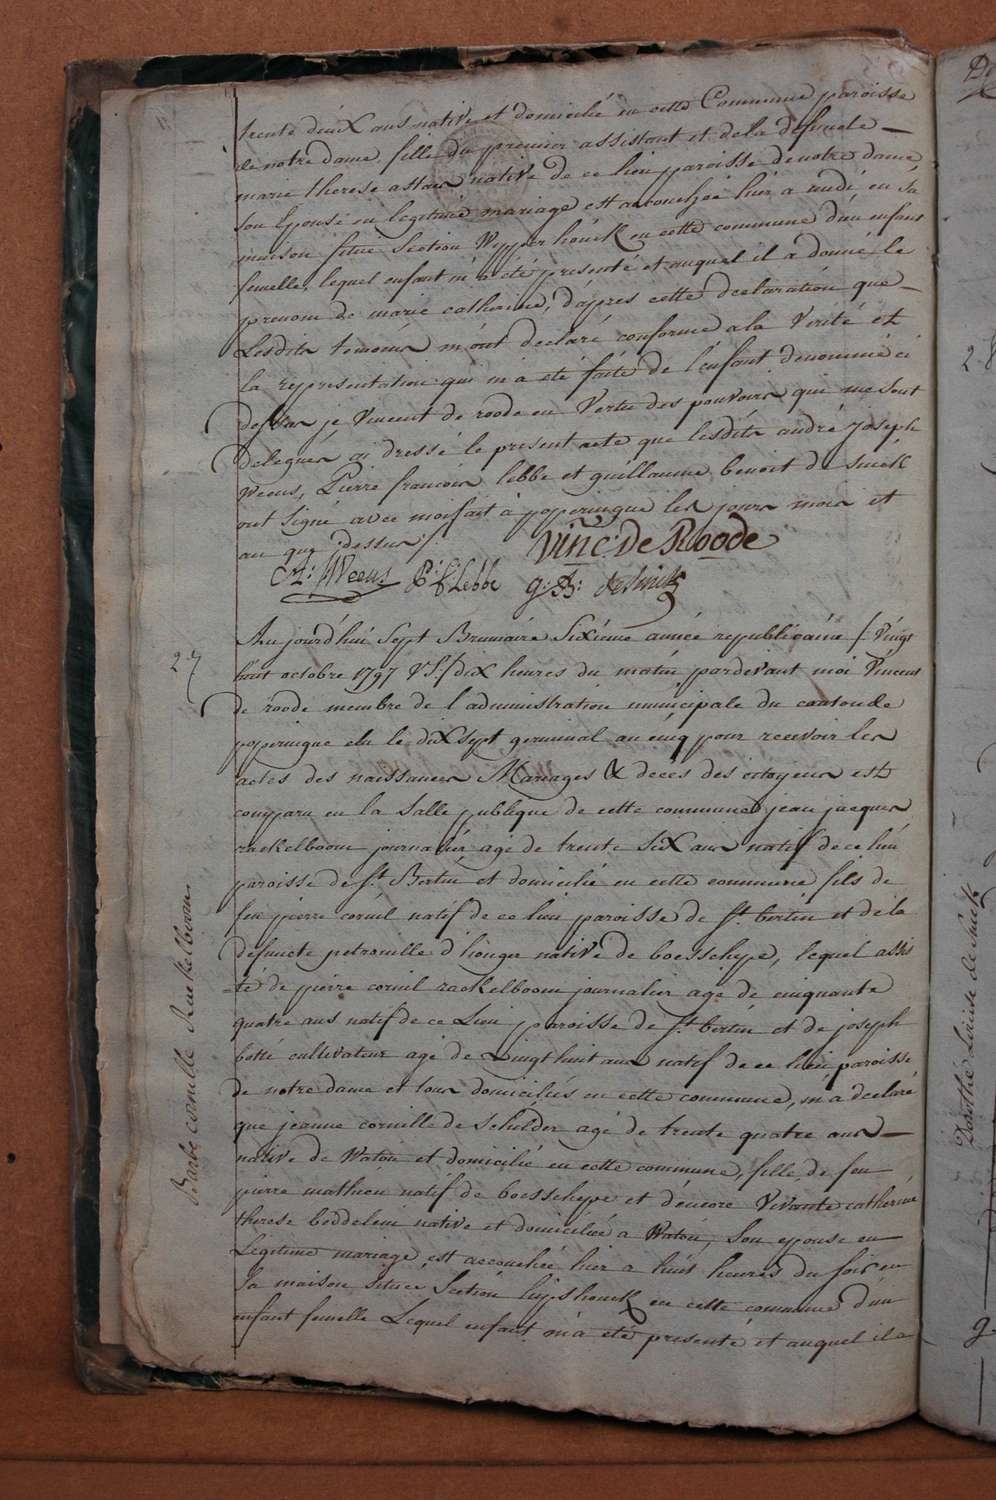 trente deux ans native et domicilié en cette Commune paroisse
de notre dame fille du premier assistant et de la defuncte
marie therese astaer native de ce lieu paroisse de notre dame
son Epouse en legitime mariage est accouchée hier a midi en sa
maison situe Section Wypper houck en cette commune d'un enfant
femelle, lequel enfant m'a été presenté et auquel il a donné le
prenom de marie catherine, d'après cette declaration que
Lesdits temoins m'ont declaré conforme a la Verité et
la representation qui m'a été faite de l'enfant denommé ci
dessus je Vincent de roode en Vertu des pouvoirs qui me sont
delegués ai dressé le present acte que lesdits andré joseph
Weens, Pierre francois lebbe et guillaume benoit de smick
ont signé avec moi fait à poperingue les jours mois et
an que dessus /.
Vinc: De Roode
Weens P: f: Lebbe g: B: de Smick
27
Aujourd'hui Sept Brumaire Sixième année republicaine / Vingt
huit octobre 1797 VS:/ dix heures du matin pardevant moi Vincent
de roode membre de l'administration municipale du canton de
poperingue elu le dix sept germinal an cinq pour recevoir les
actes des naissances Mariages & decès des citoyens est
comparu en la Salle publique de cette commune jean jacques
rackelboom journalier agé de trente Six ans natif de ce lieu
paroisse de St. Bertin et domicilié en cette commune fils de
feu pierre cornil natif de ce lieu paroisse de St. bertin et de la
defuncte petronille d'honger native de boesschepe, lequel assis
té de pierre cornil rackelboom journalier agé de cinquante
quatre ans natif de ce Lieu paroisse de St. bertin et de joseph
botté cultivateur agé de Vingt huit ans natif de ce lieu paroisse
de notre dame et tous domiciliés en cette commune, m'a declaré
que jeanne cornille de schilder agé de trente quatre ans
native de Watou et domicilié en cette commune, fille de feu
pierre mathieu natif de boesschepe et d'encore Vivante catherine
therese beddeleui native et domiciliée a Watou, Son epouse en
Legitime mariage, est accouchée hier a huit heures du soir en
Sa maison située Section huipshouck en cette commune d'un
enfant femelle Lequel enfant m'a été presenté et auquel il a
Barbe cornille Rackelboom
28
Dorothé de smick